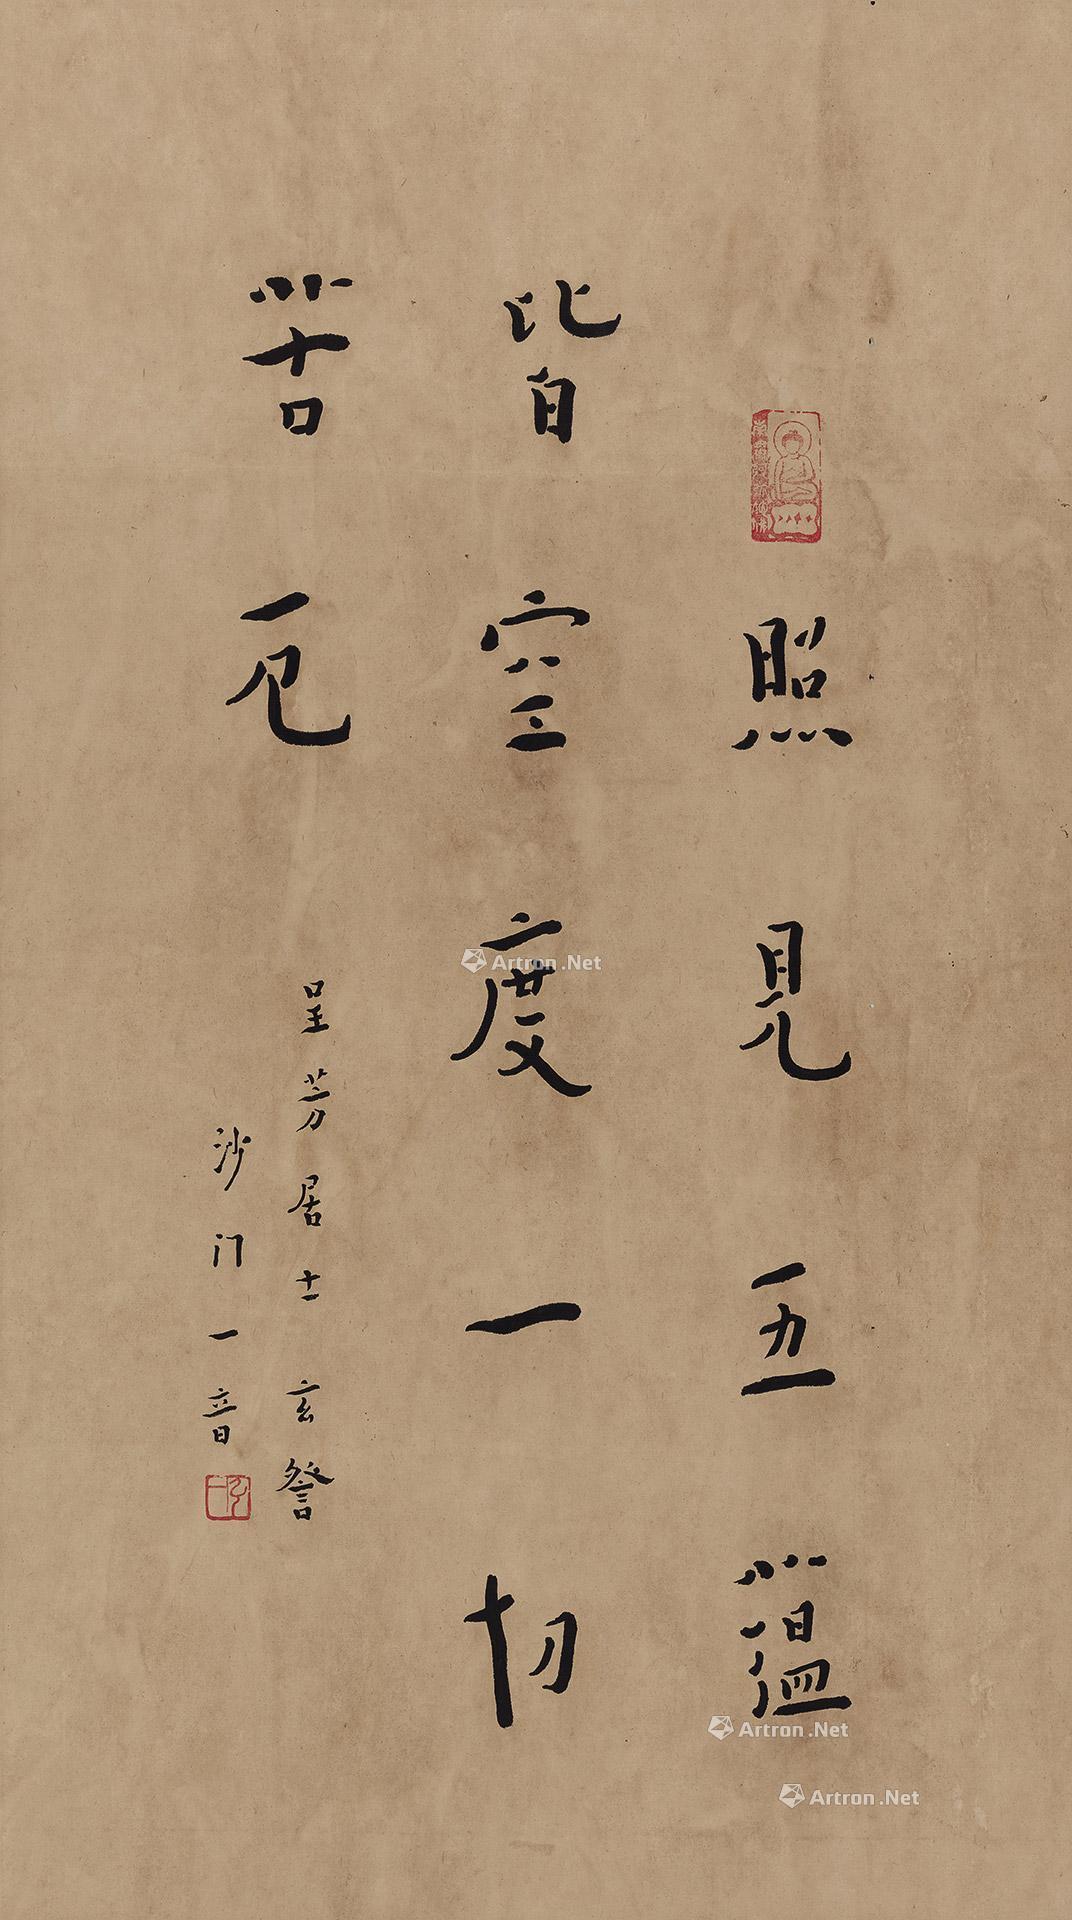 照見五蘊
皆空度一切
苦厄
呈芳居士玄詧
沙门一音
Artron.Net
Artron.Net
Artron.Net